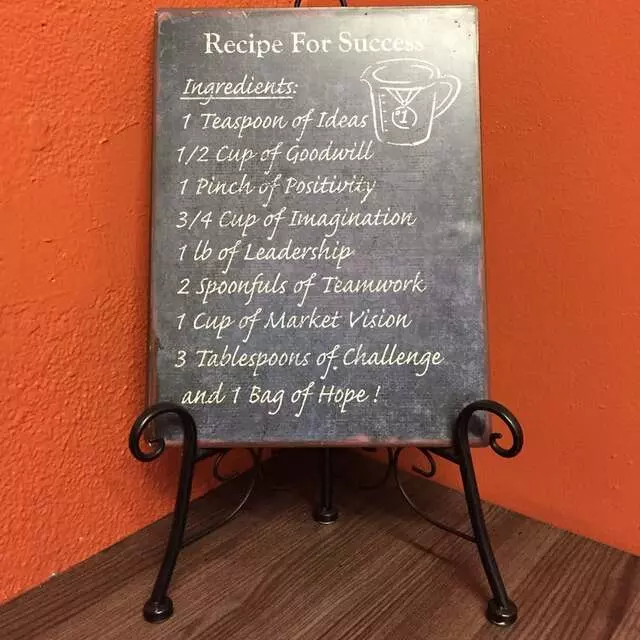 Recipe For Success
Ingredients:
#1
1 Teaspoon of Ideas
1/2 Cup of Goodwill
1 Pinch of Positivity
3/4 Cup of Imagination
1 lb of Leadership
2 Spoonfuls of Teamwork
1 Cup of Market Vision
3 Tablespoons of Challenge
and 1 Bag of Hope!